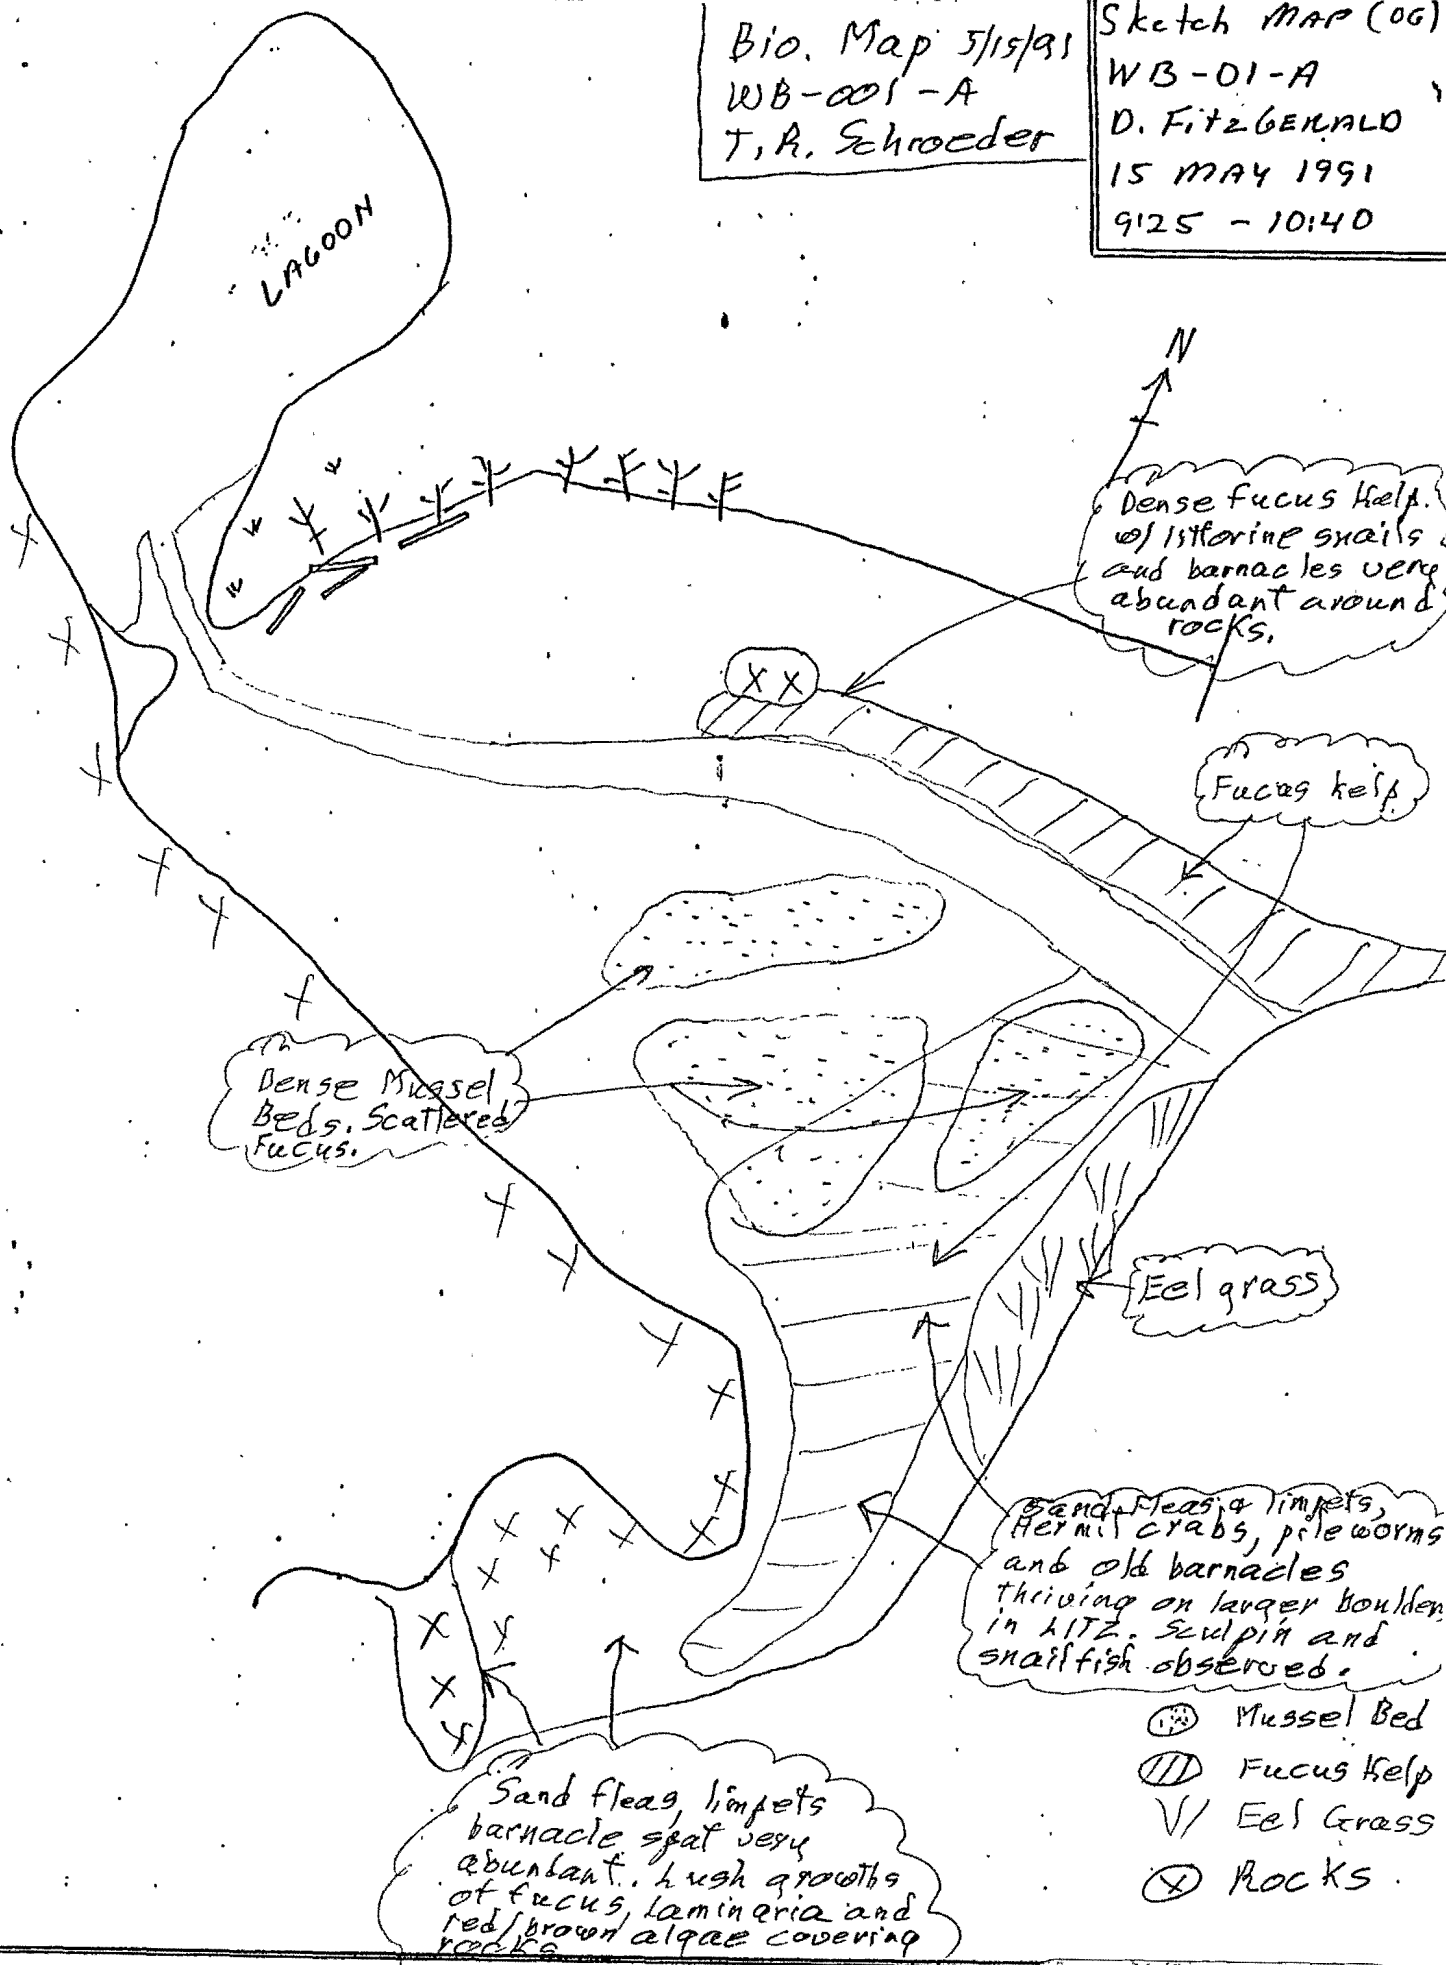 Bio. Map 5/15/91
WB-001-A
T.R. Schroeder
Sketch MAP (OG)
WB-01-A
D. FitzGERALD
15 MAY 1991
9:25 - 10:40
LAGOON
N
Dense Fucus Kelp.
w/ littorine snails &
and barnacles very
abundant around
rocks.
Fucus kelp
Dense Mussel
Beds. Scattered
Fucus.
Eel grass
Sand fleas & limpets,
Hermit crabs, pile worms
and old barnacles
thriving on larger boulder
in LITZ. Sculpin and
snailfish observed.
Mussel Bed
Fucus Kelp
Eel Grass
Rocks
Sand fleas, limpets
barnacle spat very
abundant. Lush growths
of fucus, Laminaria and
red/brown algae covering
rocks